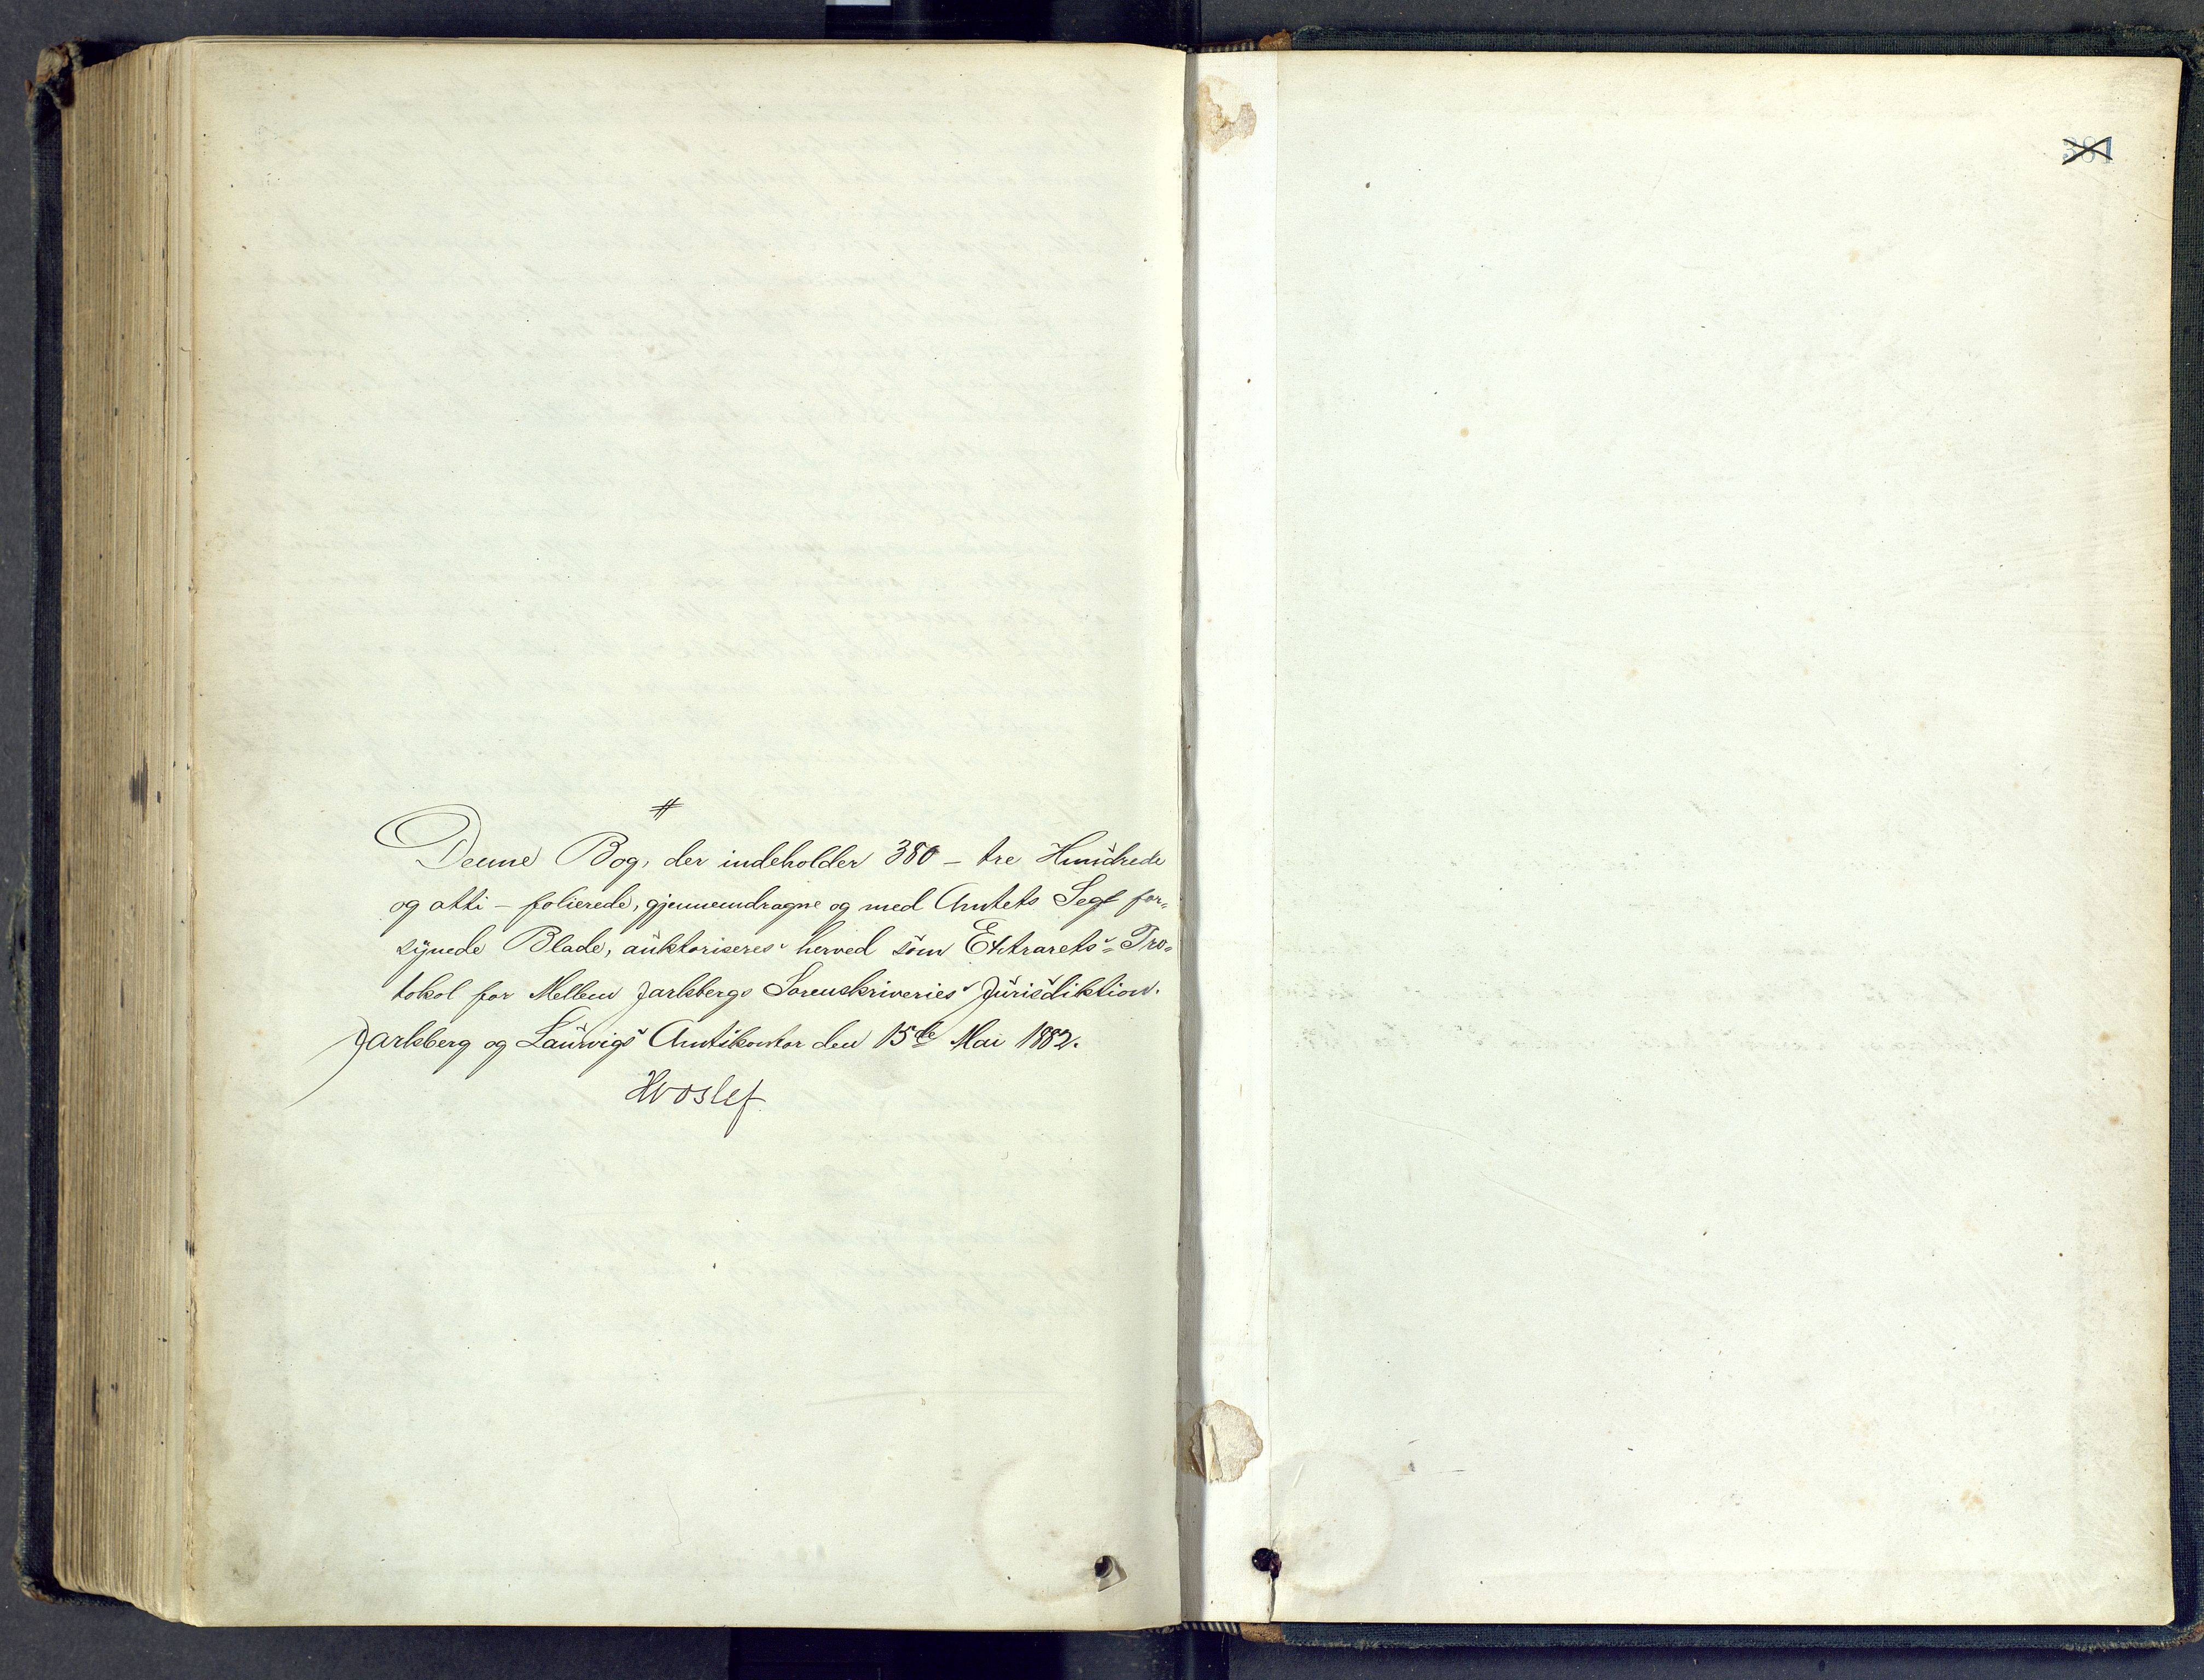 #
Denne Bog, der indeholder 380 – tre Hundrede
og otti – folierede, gjennemdragne og med Amtets Segl for-
synede Blade, auktoriseres herved som Extrarets-Pro-
tokol for Mellem Jarlsbergs Sorenskriveries Jurisdiktion.
Jarlsberg og Laurvigs Amtskontor den 15de Mai 1882.
Hvoslef
381